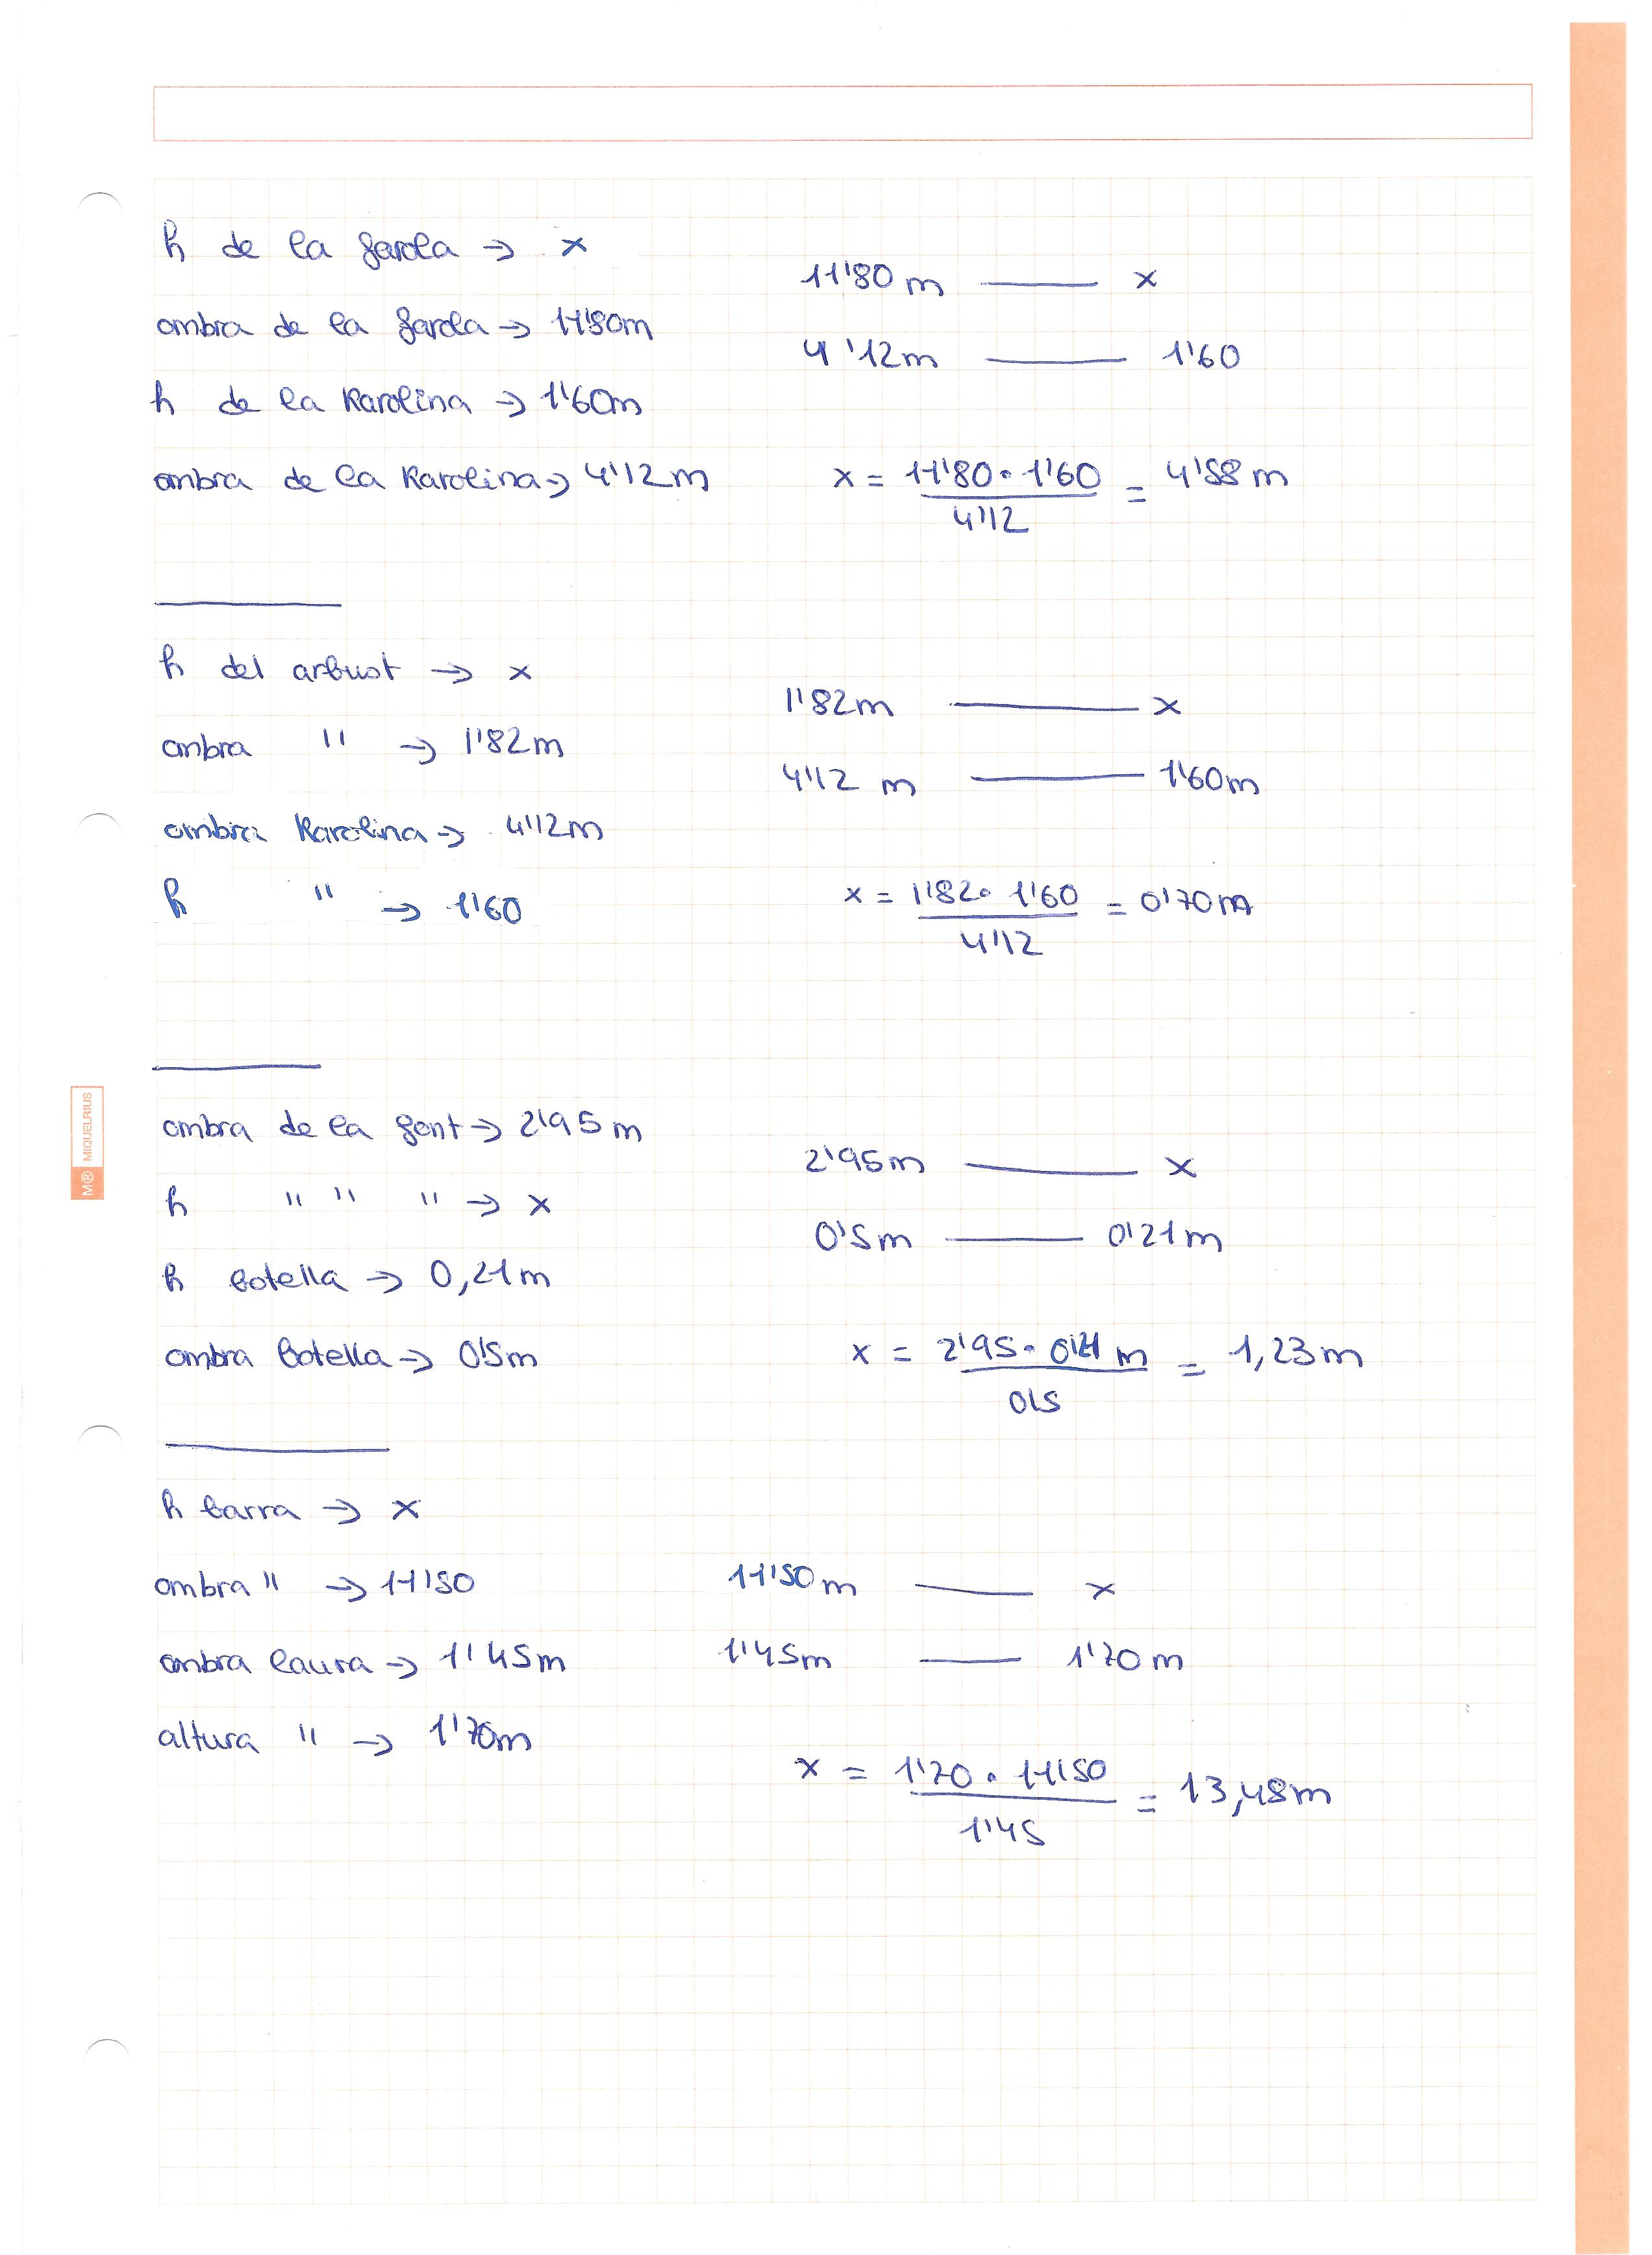 h de la farola → x
ombra de la farola → 11'80m
h de la Karolina → 1'60m
ombra de la Karolina → 4'12m
11'80 m —— x
4'12m —— 1'60
x = 11'80 · 1'60 / 4'12 = 4'58 m
h del arbust → x
ombra " → 1'82m
ombra Karolina → 4'12m
h " → 1'60
1'82m —— x
4'12 m —— 1'60m
x = 1'82 · 1'60 / 4'12 = 0'70m
ombra de la font → 2'95m
h " " " → x
h botella → 0,21m
ombra botella → 0'5m
2'95m —— x
0'5m —— 0'21m
x = 2'95 · 0'21 m / 0'5 = 1,23m
h barra → x
ombra " → 11'50
ombra laura → 1'45m
altura " → 1'70m
11'50m —— x
1'45m —— 1'70m
x = 1'70 · 11'50 / 1'45 = 13,48m
M® MIQUELRIUS